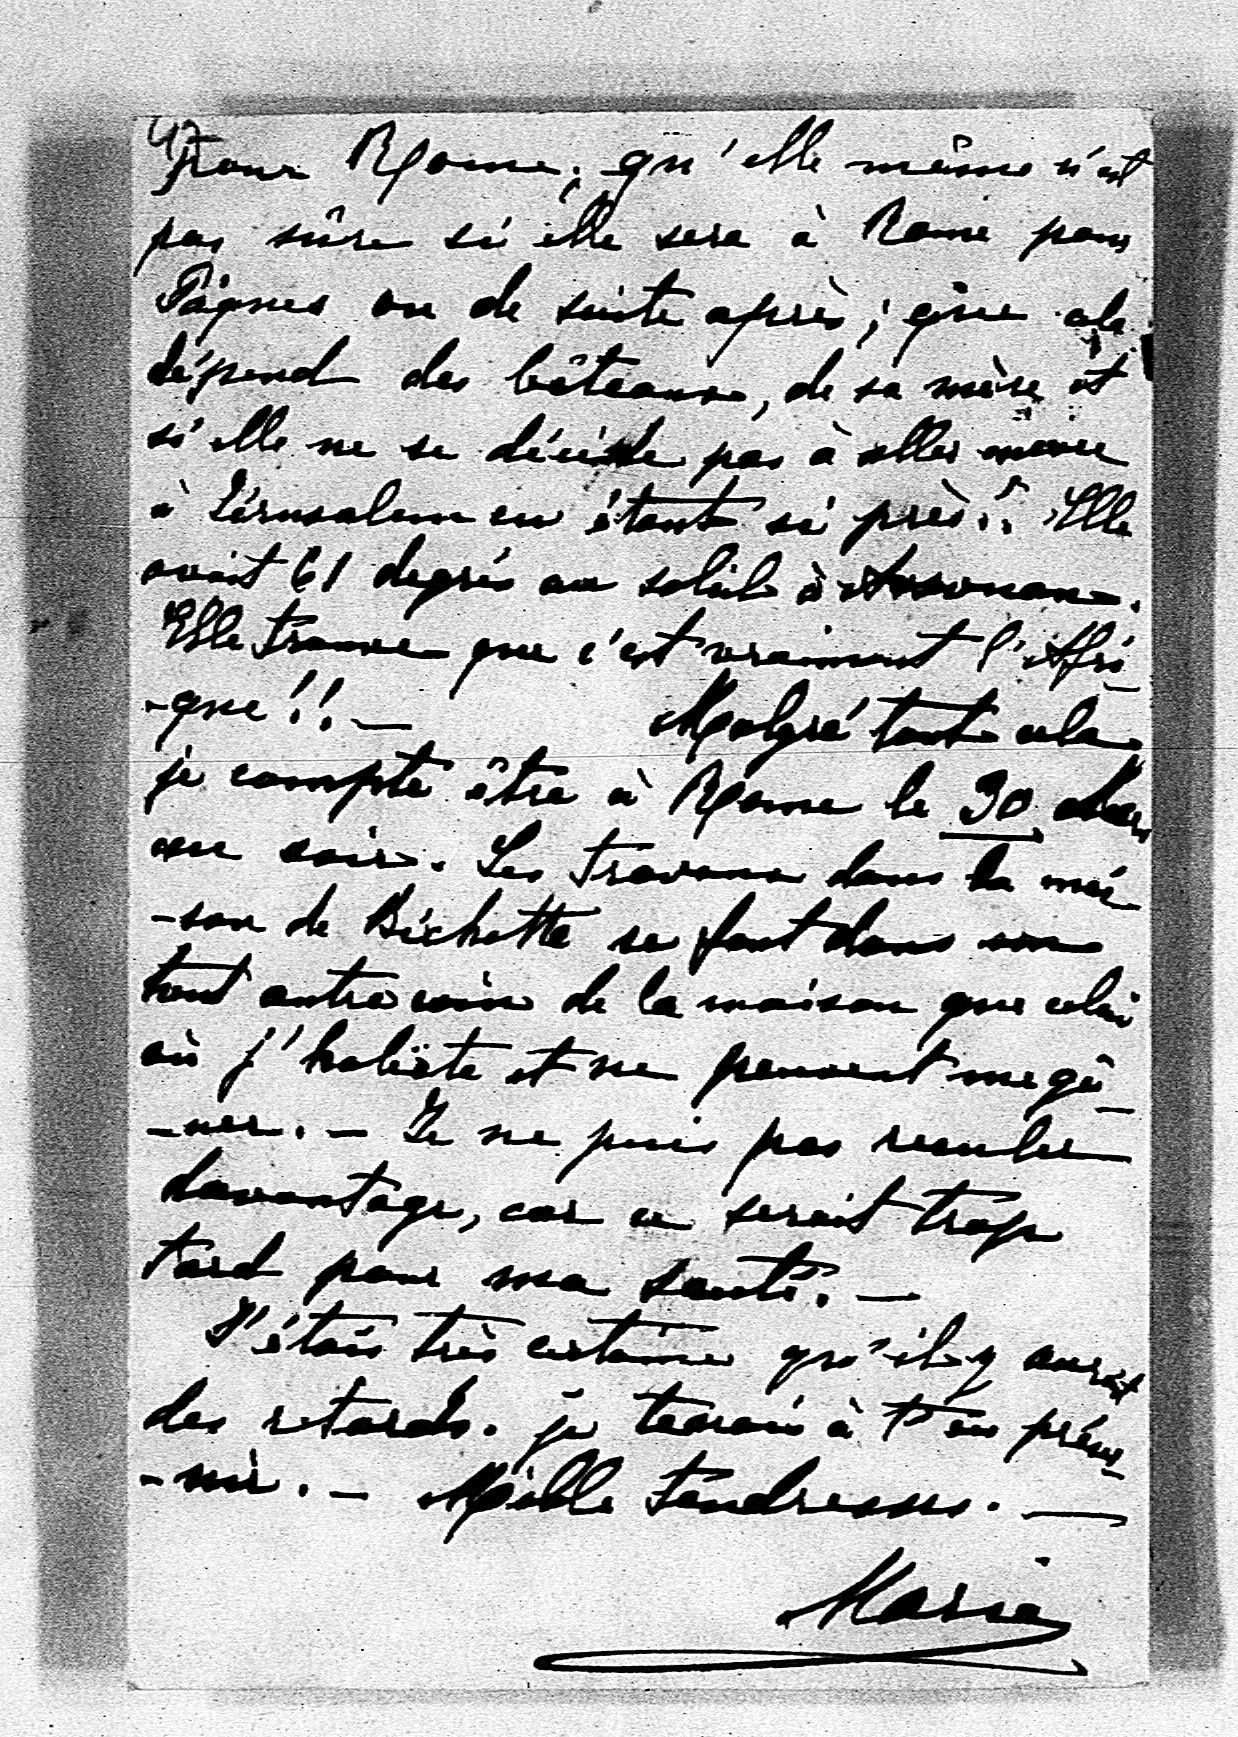 47
pour Rome; qu'elle même n'est
pas sûre si elle sera à Rome pour
Pâques ou de suite après; que cela
dépend des bâteaux, de sa mère et
si elle ne se décide pas à aller même
à Jérusalem en étant si près. Elle
avait 61 degrés au soleil à Assouan.
Elle trouve que c'est vraiment l'Afri
-que!! —
Malgré tout cela
je compte être à Rome le 30 Mars
au soir. Les travaux dans la mai
-son de Bichette se font dans un
tout autre coin de la maison que celui
où j'habite et ne peuvent me gê
-ner. — Je ne puis pas reculer
davantage, car ce serait trop
tard pour ma santé. —
J'étais très certaine qu'il y aurait
des retards. je tenais à t'en préve
-nir. — Mille tendresses. —
Marie